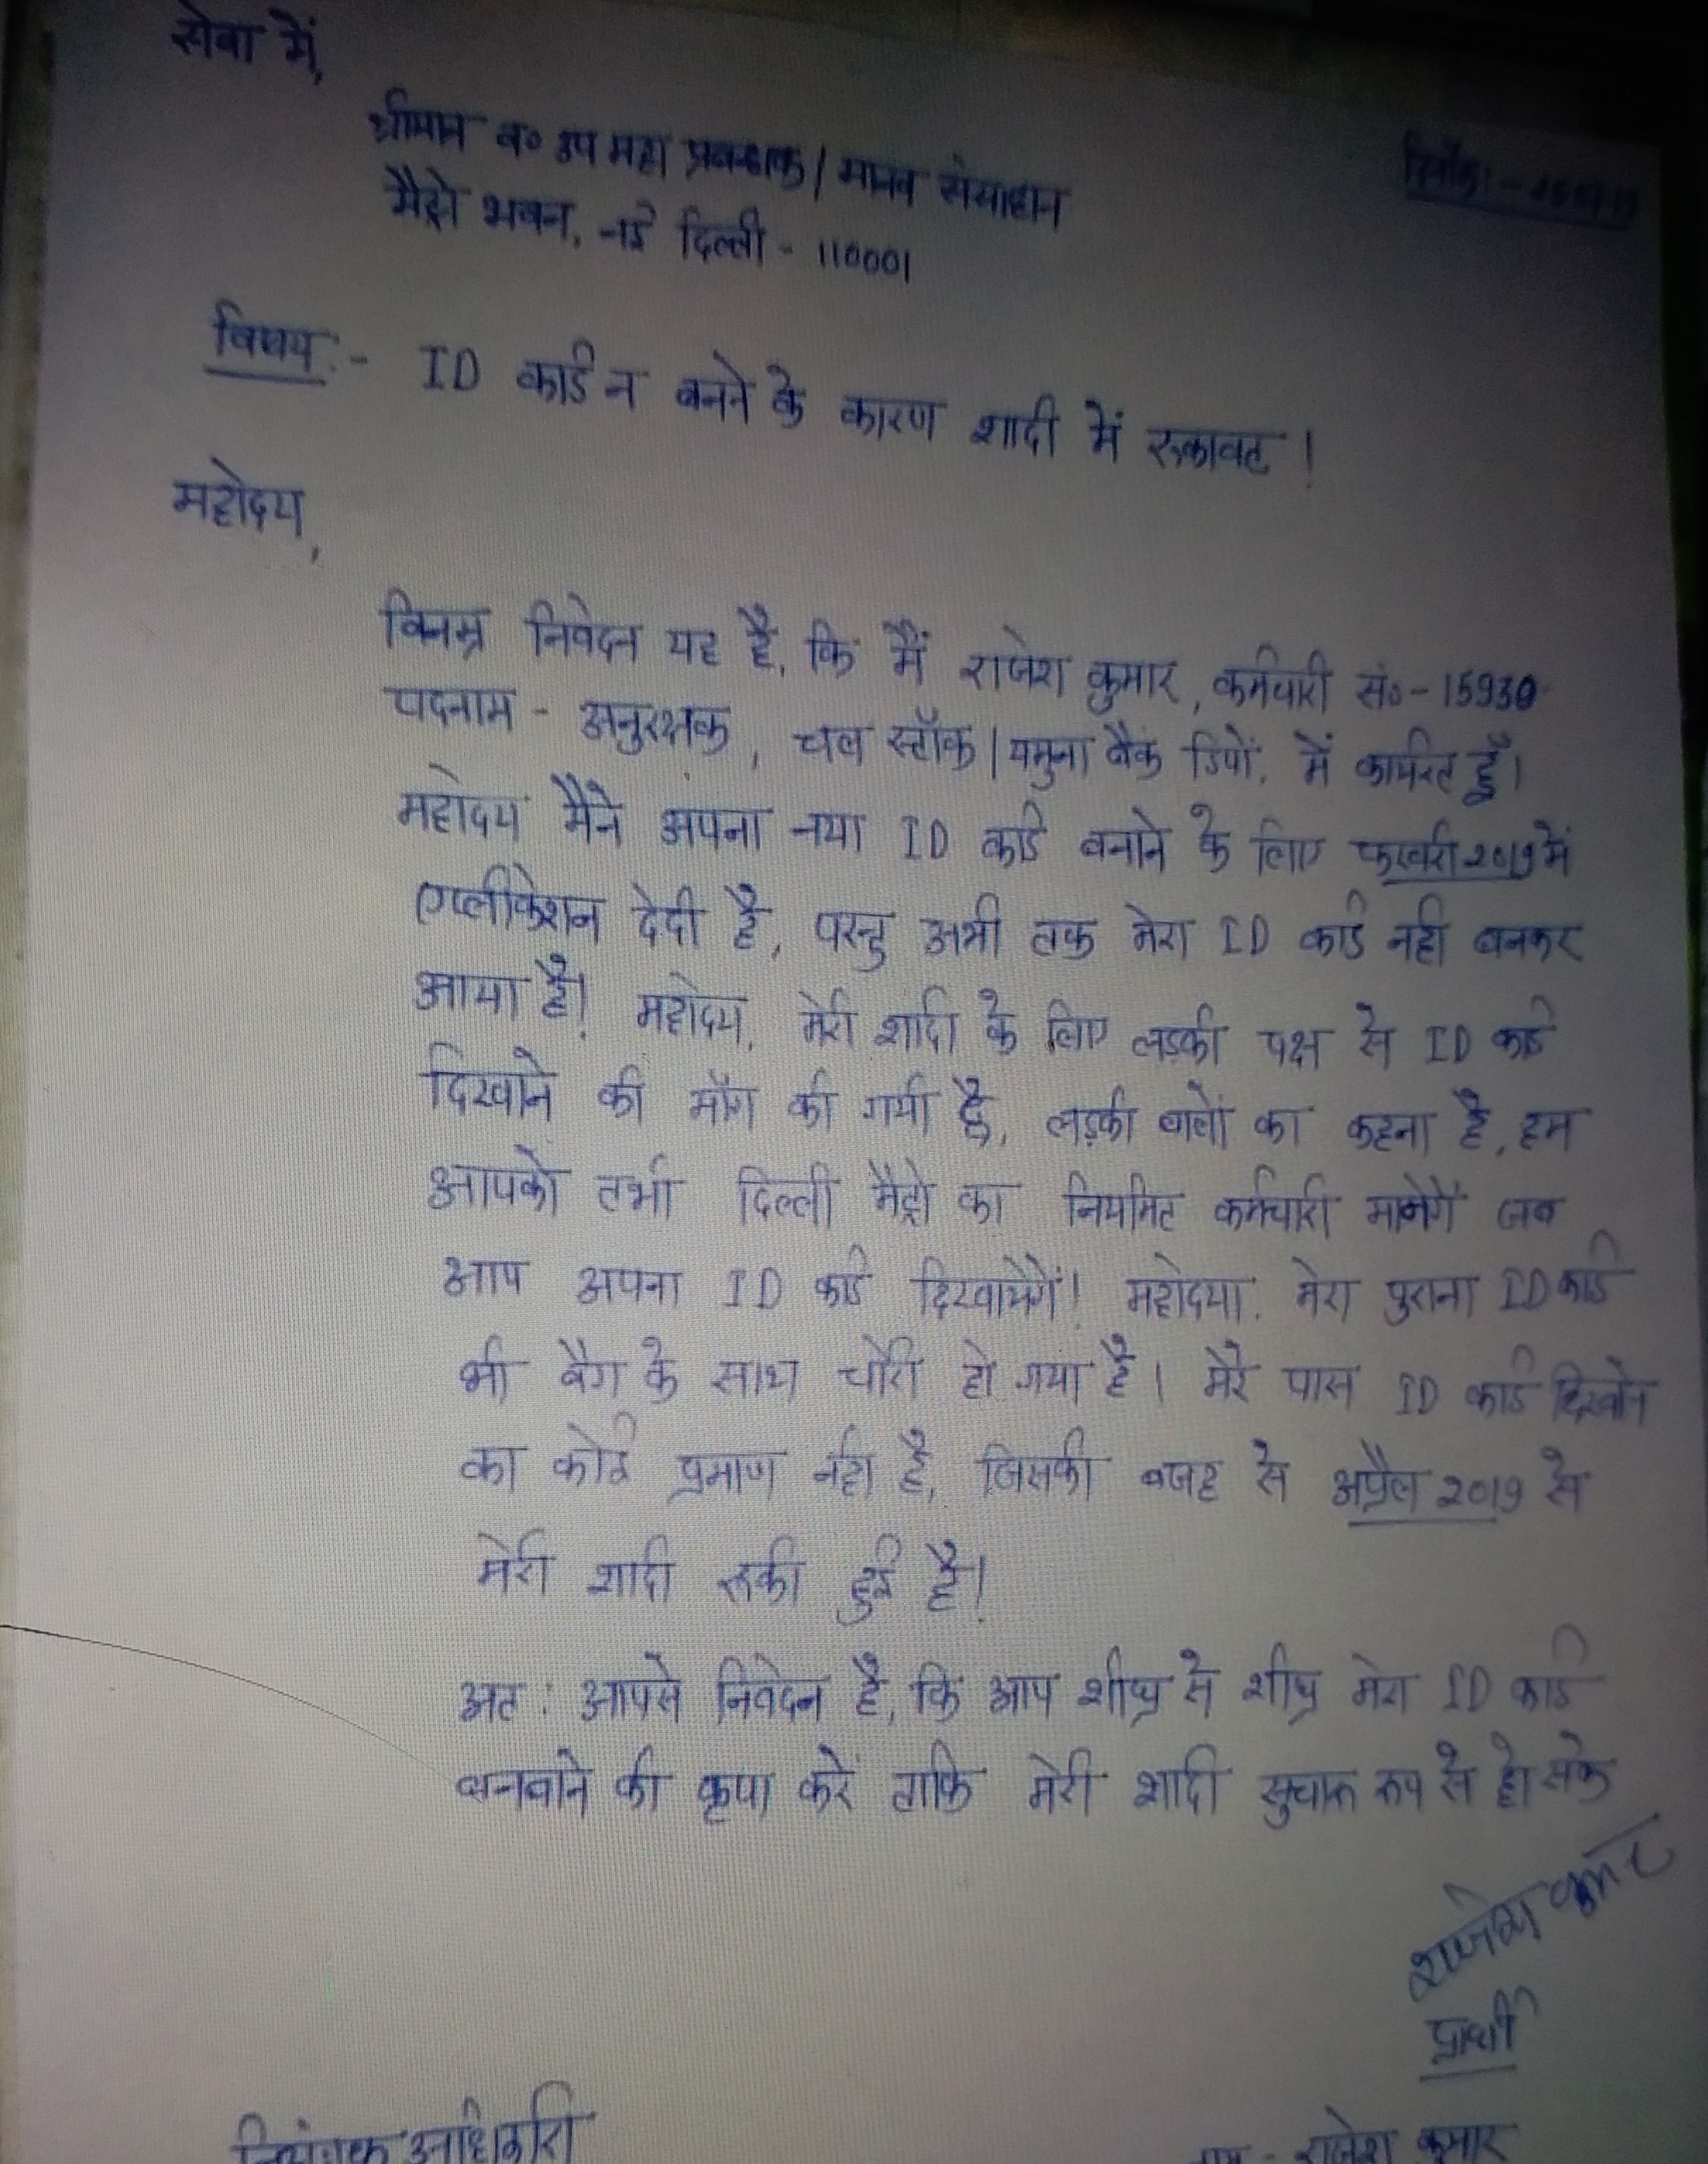 सेवा में,
श्रीमान व० उप महा प्रबन्धक / मानव संसाधन
दिनाँक:-
मैट्रो भवन, नई दिल्ली - 110001
विषय:- ID कार्ड न बनने के कारण शादी में रुकावट !
महोदय,
विनम्र निवेदन यह है, कि मैं राजेश कुमार, कर्मचारी सं०-15930
पदनाम - अनुरक्षक, चल स्टॉक / यमुना बैंक डिपों, में कार्यरत हूँ।
महोदय मैने अपना नया ID कार्ड बनाने के लिए फरवरी 2019 में
एप्लीकेशन देदी है, परन्तु अभी तक मेरा ID कार्ड नही बनकर
आया है! महोदय, मेरी शादी के लिए लड़की पक्ष से ID कार्ड
दिखाने की माँग की गयी है, लड़की वालों का कहना है, हम
आपको तभी दिल्ली मैट्रो का नियमित कर्मचारी मानेगें जब
आप अपना ID कार्ड दिखायेगें! महोदया, मेरा पुराना ID कार्ड
भी बैग के साथ चोरी हो गया है। मेरे पास ID कार्ड दिखाने
का कोई प्रमाण नही है, जिसकी वजह से अप्रैल 2019 से
मेरी शादी रुकी हुई है!
अत: आपसे निवेदन है, कि आप शीघ्र से शीघ्र मेरा ID कार्ड
बनवाने की कृपा करें ताकि मेरी शादी सुचारू रूप से हो सके
राजेश कुमार
प्रार्थी
नियंत्रक अधिकारी
राजेश कुमार